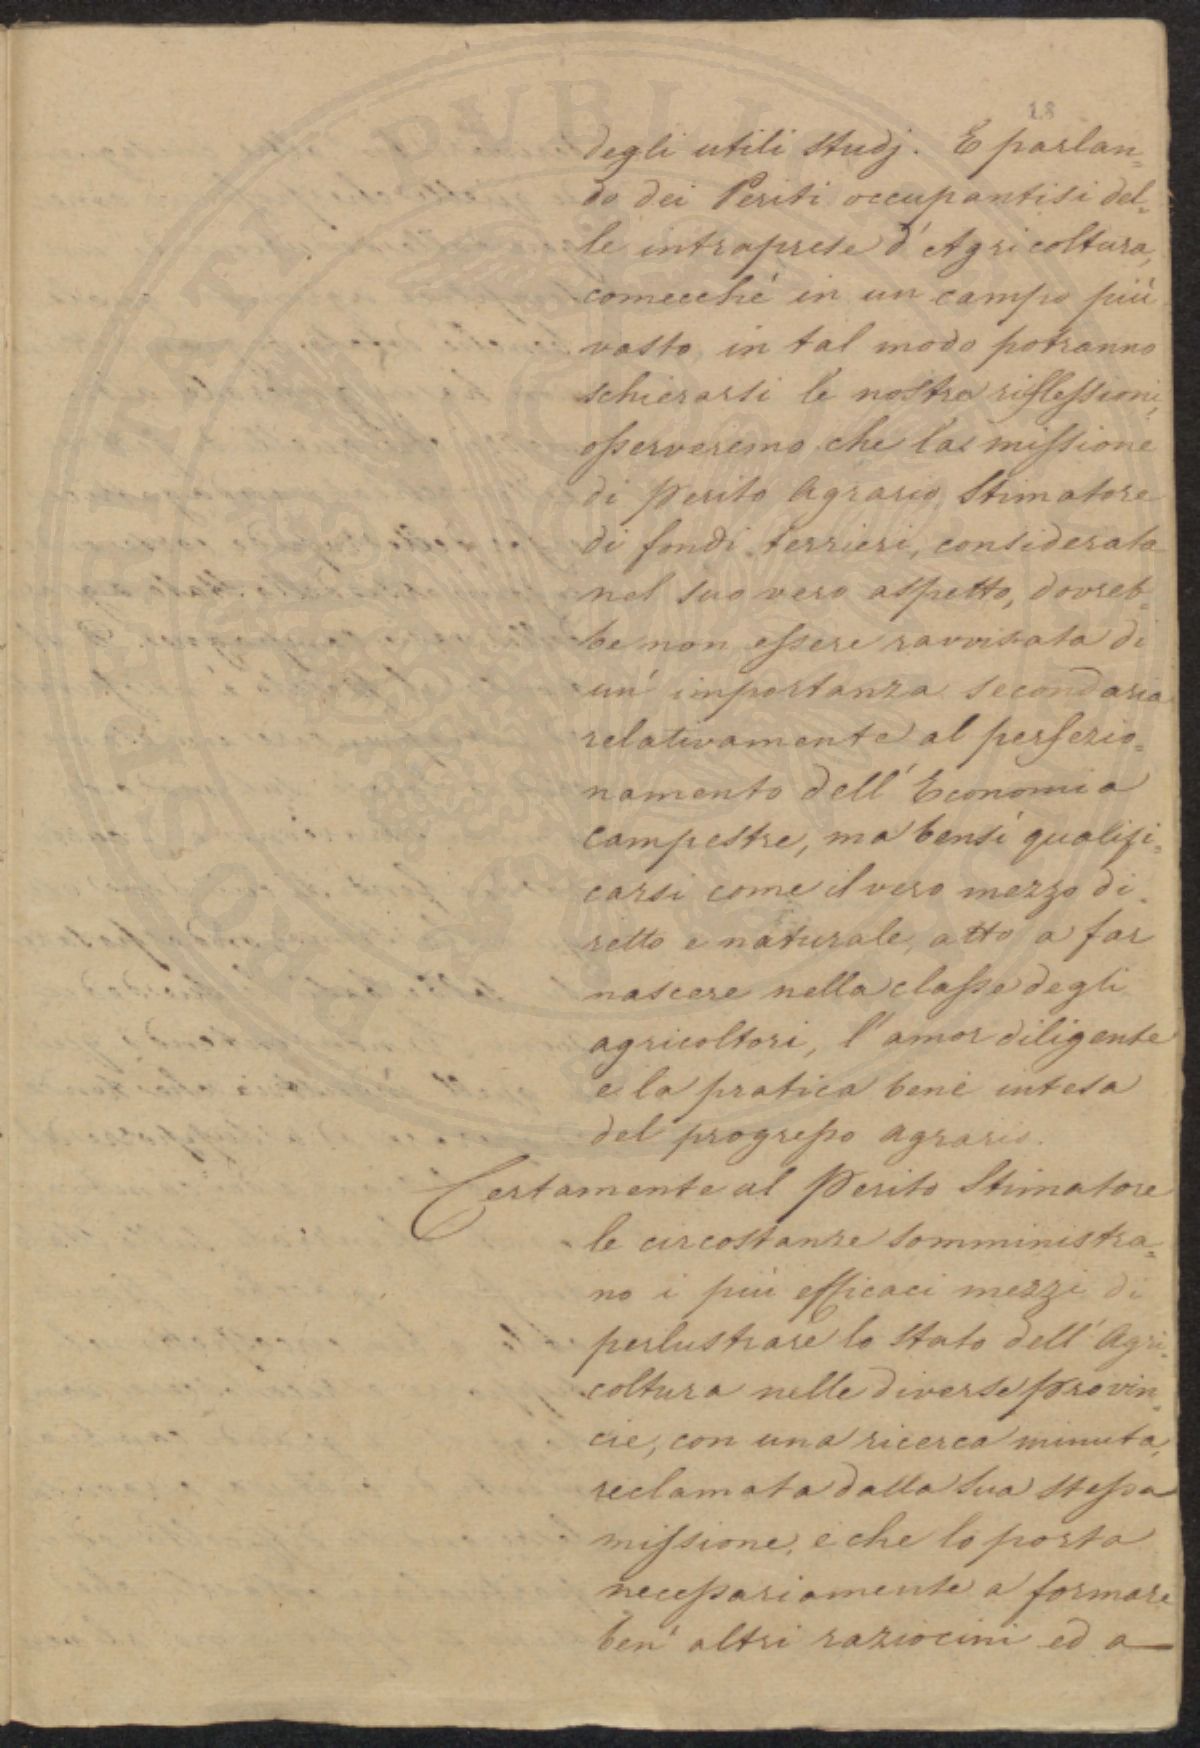 18
degli utili studj. E parlan=
do dei Periti occupantisi del=
le intraprese d'Agricoltura,
comecché in un campo più
vasto in tal modo potranno
schierarsi le nostre riflessioni,
osserveremo che la missione
di perito agrario, stimatore
di fondi terrieri, considerata
nel suo vero aspetto, dovreb=
be non essere ravvisata di
un' importanza secondaria
relativamente al perfezio=
namento dell' Economia
campestre, ma bensì qualifi=
carsi come il vero mezzo di=
retto e naturale, atto a far
nascere nella classe degli
agricoltori, l'amor diligente
e la pratica bene intesa
del progresso agrario.
Certamente al Perito Stimatore
le circostanze somministra=
no i più efficaci mezzi di
perlustrare lo stato dell' Agri=
coltura nelle diverse provin=
cie, con una ricerca minuta,
reclamata dalla sua stessa
missione, e che lo porta
necessariamente a formare
ben' altri raziocini ed a